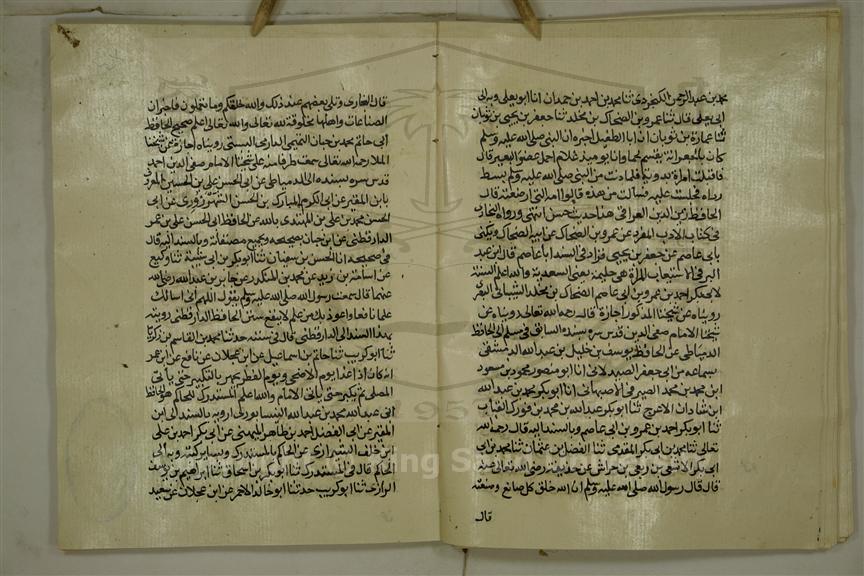 محمد بن عبد الرحمن الكنجرودي ثنا محمد بن احمد بن حمدان انا ابو يعلى وبه الى
ابي يعلى قال ثنا عمرو بن الضحاك بن مخلد ثنا جعفر بن يحيى بن ثوبان
ثنا عمارة بن ثوبان ان ابا الطفيل اخبره ان النبي صلى الله عليه وسلم
كان بالجعرانة يقسم لحما وانا يوميذ غلام احمل عضو البعير قال
فاقبلت امراة بدوية فلما دنت من النبي صلى الله عليه وسلم بسط
رداه فجلست عليه فسالت من هذه قالوا امه التي ارضعته قال
الحافظ زين الدين العراقي هذا حديث حسن انتهى ورواه البخاري
في كتاب الادب المفرد عن عمرو بن الضحاك عن ابيه الضحاك ويكنى
بابي عاصم عن جعفر بن يحيى فزاد في السند ابا عاصم قال ابن عبد
البر في الاستيعاب المراة هي حليمة يعني السعدية والله اعلم السنة
لابي بكر احمد بن عمرو بن ابي عاصم الضحاك بن مخلد الشيباني البصري
رويناه عن شيخنا المذكور اجازة قال رحمه الله تعالى رويناه عن
شيخنا الامام صفي الدين قدس سره بسنده السابق في مسلم الى الحافظ
الدمياطي عن الحافظ يوسف بن خليل بن عبد الله الدمشقي
بسماعه من ابي جعفر الصيدلاني انا ابو منصور محمود بن مسعود
ابن محمد بن محمد الصيرفي الاصبهاني انا ابو بكر محمد بن عبد الله
ابن شاذان الاعرج ثنا ابو بكر عبد الله بن محمد بن فورك القباب
ثنا ابو بكر احمد بن عمرو بن ابي عاصم وبالسند اليه قال رحمه الله
تعالى ثنا محمد بن ابي بكر المقدمي ثنا الفضل بن عثمان ثنا محمد بن ابي
عن ربعي بن حراش عن حذيفة رضي الله تعالى عنه
قال قال رسول الله صلى الله عليه وسلم ان الله خلق كل صانع وصنعته
قال
قال البخاري وتلى بعضهم عند ذلك والله خلقكم وما تعملون فاخبر ان
الصناعات واهلها مخلوقة لله تعالى والله تعالى اعلم صحيح الحافظ
ابي حاتم محمد بن حبان التميمي الدارمي البستي رويناه اجازة عن شيخنا
الملا رحمه الله تعالى سمعت طرفا منه على شيخنا الامام صفي الدين احمد
قدس سره بسنده الى الدمياطي عن ابي الحسن علي بن الحسين المعروف
بابن المقير عن ابي الكرم المبارك بن الحسن الشهرزوري عن ابي
الحسن محمد بن علي بن المهتدي بالله عن الحافظ ابي الحسن علي بن عمر
الدارقطني عن ابن حبان بصحيحه وبجميع مصنفاته وبالسند اليه قال
في صحيحه انا الحسن بن سفيان ثنا ابو بكر بن ابي شيبة ثنا وكيع
عن اسامة بن زيد عن محمد بن المنكدر عن جابر بن عبد الله رضي الله
عنهما قال سمعت رسول الله صلى الله عليه وسلم يقول اللهم اني اسالك
علما نافعا واعوذ بك من علم لا ينفع سنن الحافظ الدارقطني رويته
بهذا السند الى الدارقطني قال في سننه حدثنا محمد بن القاسم بن زكريا
ثنا ابو كريب ثنا حاتم بن اسماعيل عن ابن عجلان عن نافع عن ابن عمر
انه كان اذا غدا يوم الاضحى ويوم الفطر يجهر بالتكبير حتى ياتي
المصلى ثم يكبر حتى ياتي الامام والله اعلم المستدرك للحاكم هو الحافظ
ابي عبد الله محمد بن عبد الله النيسابوري ارويه بالسند الى ابن
المقير عن ابي الفضل احمد بن طاهر الميهني عن ابي بكر احمد بن علي
ابن خلف الشيرازي عن الحاكم بالمستدرك وبساير كتبه وبه الى
الحاكم قال في المستدرك ثنا ابو بكر بن اسحاق ثنا ابراهيم بن يوسف
الرازي ثنا ابو كريب حدثنا ابو خالد الاحمر عن ابن عجلان عن سعيد